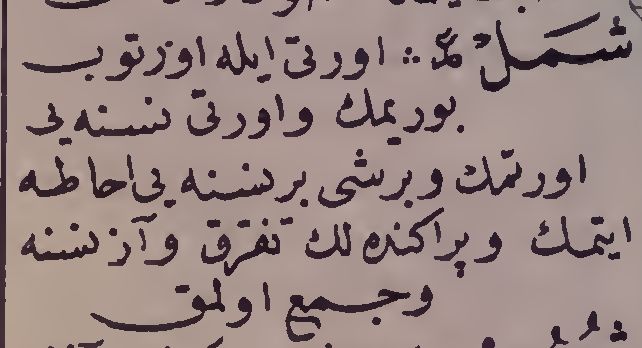 شمل اورتى ايله اوزتوب
بوريمك واورتى نسنه يى
اورتمك وبرشى برنسنه يى احاطه
ايتمك وپراكنده لك تفرق وآز نسنه
وجمع اولمق